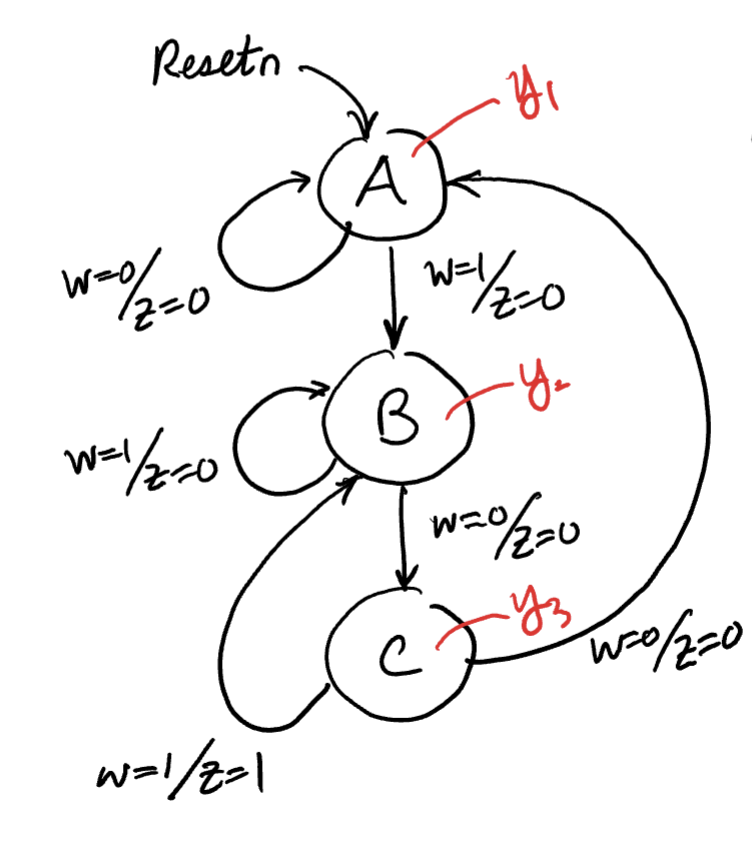 Resetn
y1
A
w=0/z=0
w=1/z=0
B
y2
w=1/z=0
w=0/z=0
C
y3
w=0/z=0
w=1/z=1